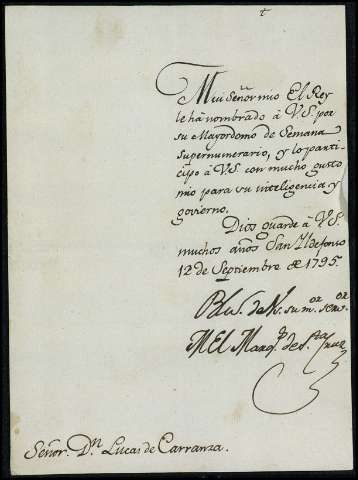 Mui Señor mio El Rey
le há nombrado á V.S. por
su Mayordomo de Semana
Supernumerario, y lo parti-
cipo á V.S. con mucho gusto
mio para su inteligencia y
govierno.
Dios guarde á V.S.
muchos años San Ildefonso
12 de Septiembre de 1795.
su mor. servor.
M El Marqs. de Sta. Cruz
Señor. Dn. Lucas de Carranza.